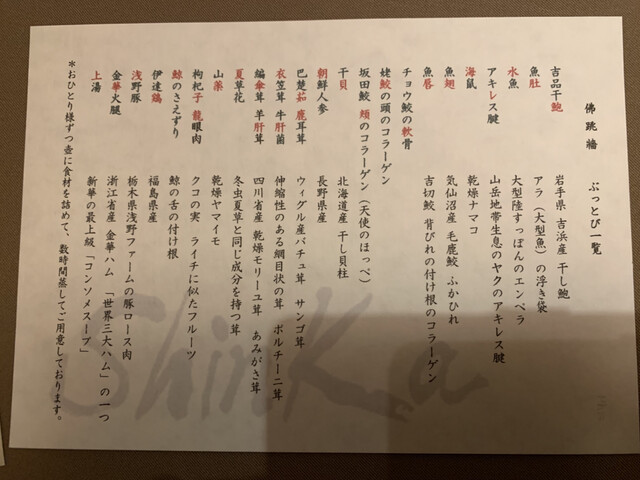 佛跳牆 ぶっとび一覧
吉品干鮑 岩手県 吉浜産 干し鮑
魚肚 アラ（大型魚）の浮き袋
水魚 大型陸すっぽんのエンペラ
アキレス腱 山岳地帯生息のヤクのアキレス腱
海鼠 乾燥ナマコ
魚翅 気仙沼産 毛鹿鮫 ふかひれ
魚唇 吉切鮫 背びれの付け根のコラーゲン
チョウ鮫の軟骨
姥鮫の頭のコラーゲン
坂田鮫 頬のコラーゲン（天使のほっぺ）
干貝 北海道産 干し貝柱
朝鮮人参 長野県産
巴楚茹 鹿耳茸 ウィグル産バチュ茸 サンゴ茸
衣笠茸 牛肝菌 伸縮性のある網目状の茸 ポルチーニ茸
編傘茸 羊肝茸 四川省産 乾燥モリーユ茸 あみがさ茸
夏草花 冬虫夏草と同じ成分を持つ茸
山薬 乾燥ヤマイモ
枸杞子 龍眼肉 クコの実 ライチに似たフルーツ
鯨のさえずり 鯨の舌の付け根
伊達鶏 福島県産
浅野豚 栃木県浅野ファームの豚ロース肉
金華火腿 浙江省産 金華ハム 「世界三大ハム」の一つ
上湯 新華の最上級「コンソメスープ」
＊おひとり様ずつ壺に食材を詰めて、数時間蒸してご用意しております。
ShinKa